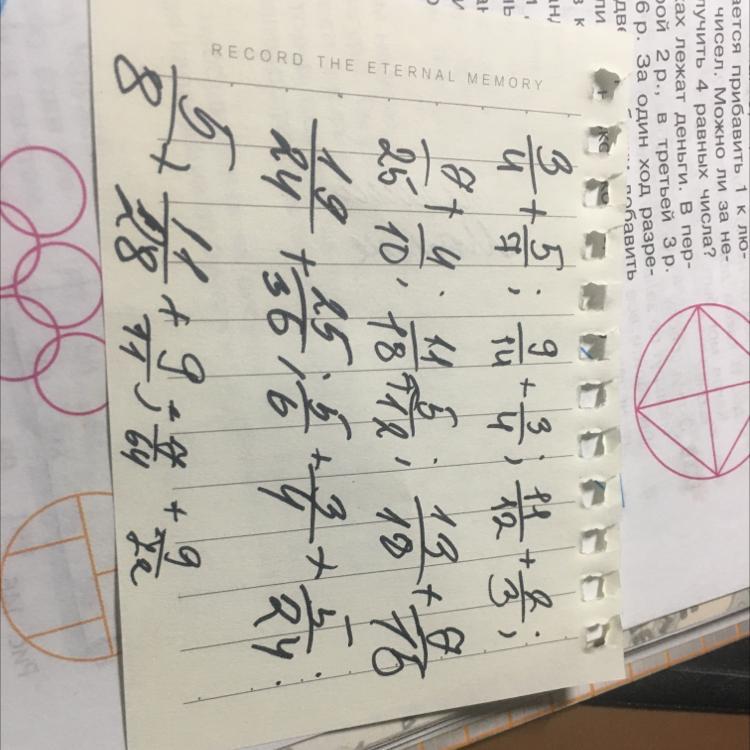 ается прибавить 1 к лю-
чисел. Можно ли за не-
лучить 4 равных числа?
ках лежат деньги. В пер-
рой 2 р., в третьей 3 р.
6 р. За один ход разре-
добавить
RECORD THE ETERNAL MEMORY
3/4 + 5/7; 9/14 + 3/4; 11/12 + 2/3;
8/25 + 4/10; 11/18 + 5/12; 13/18 + 8/15
19/24 + 25/36; 5/6 + 3/4 + 5/24;
5/8 + 11/28 + 9/11; + 9/22